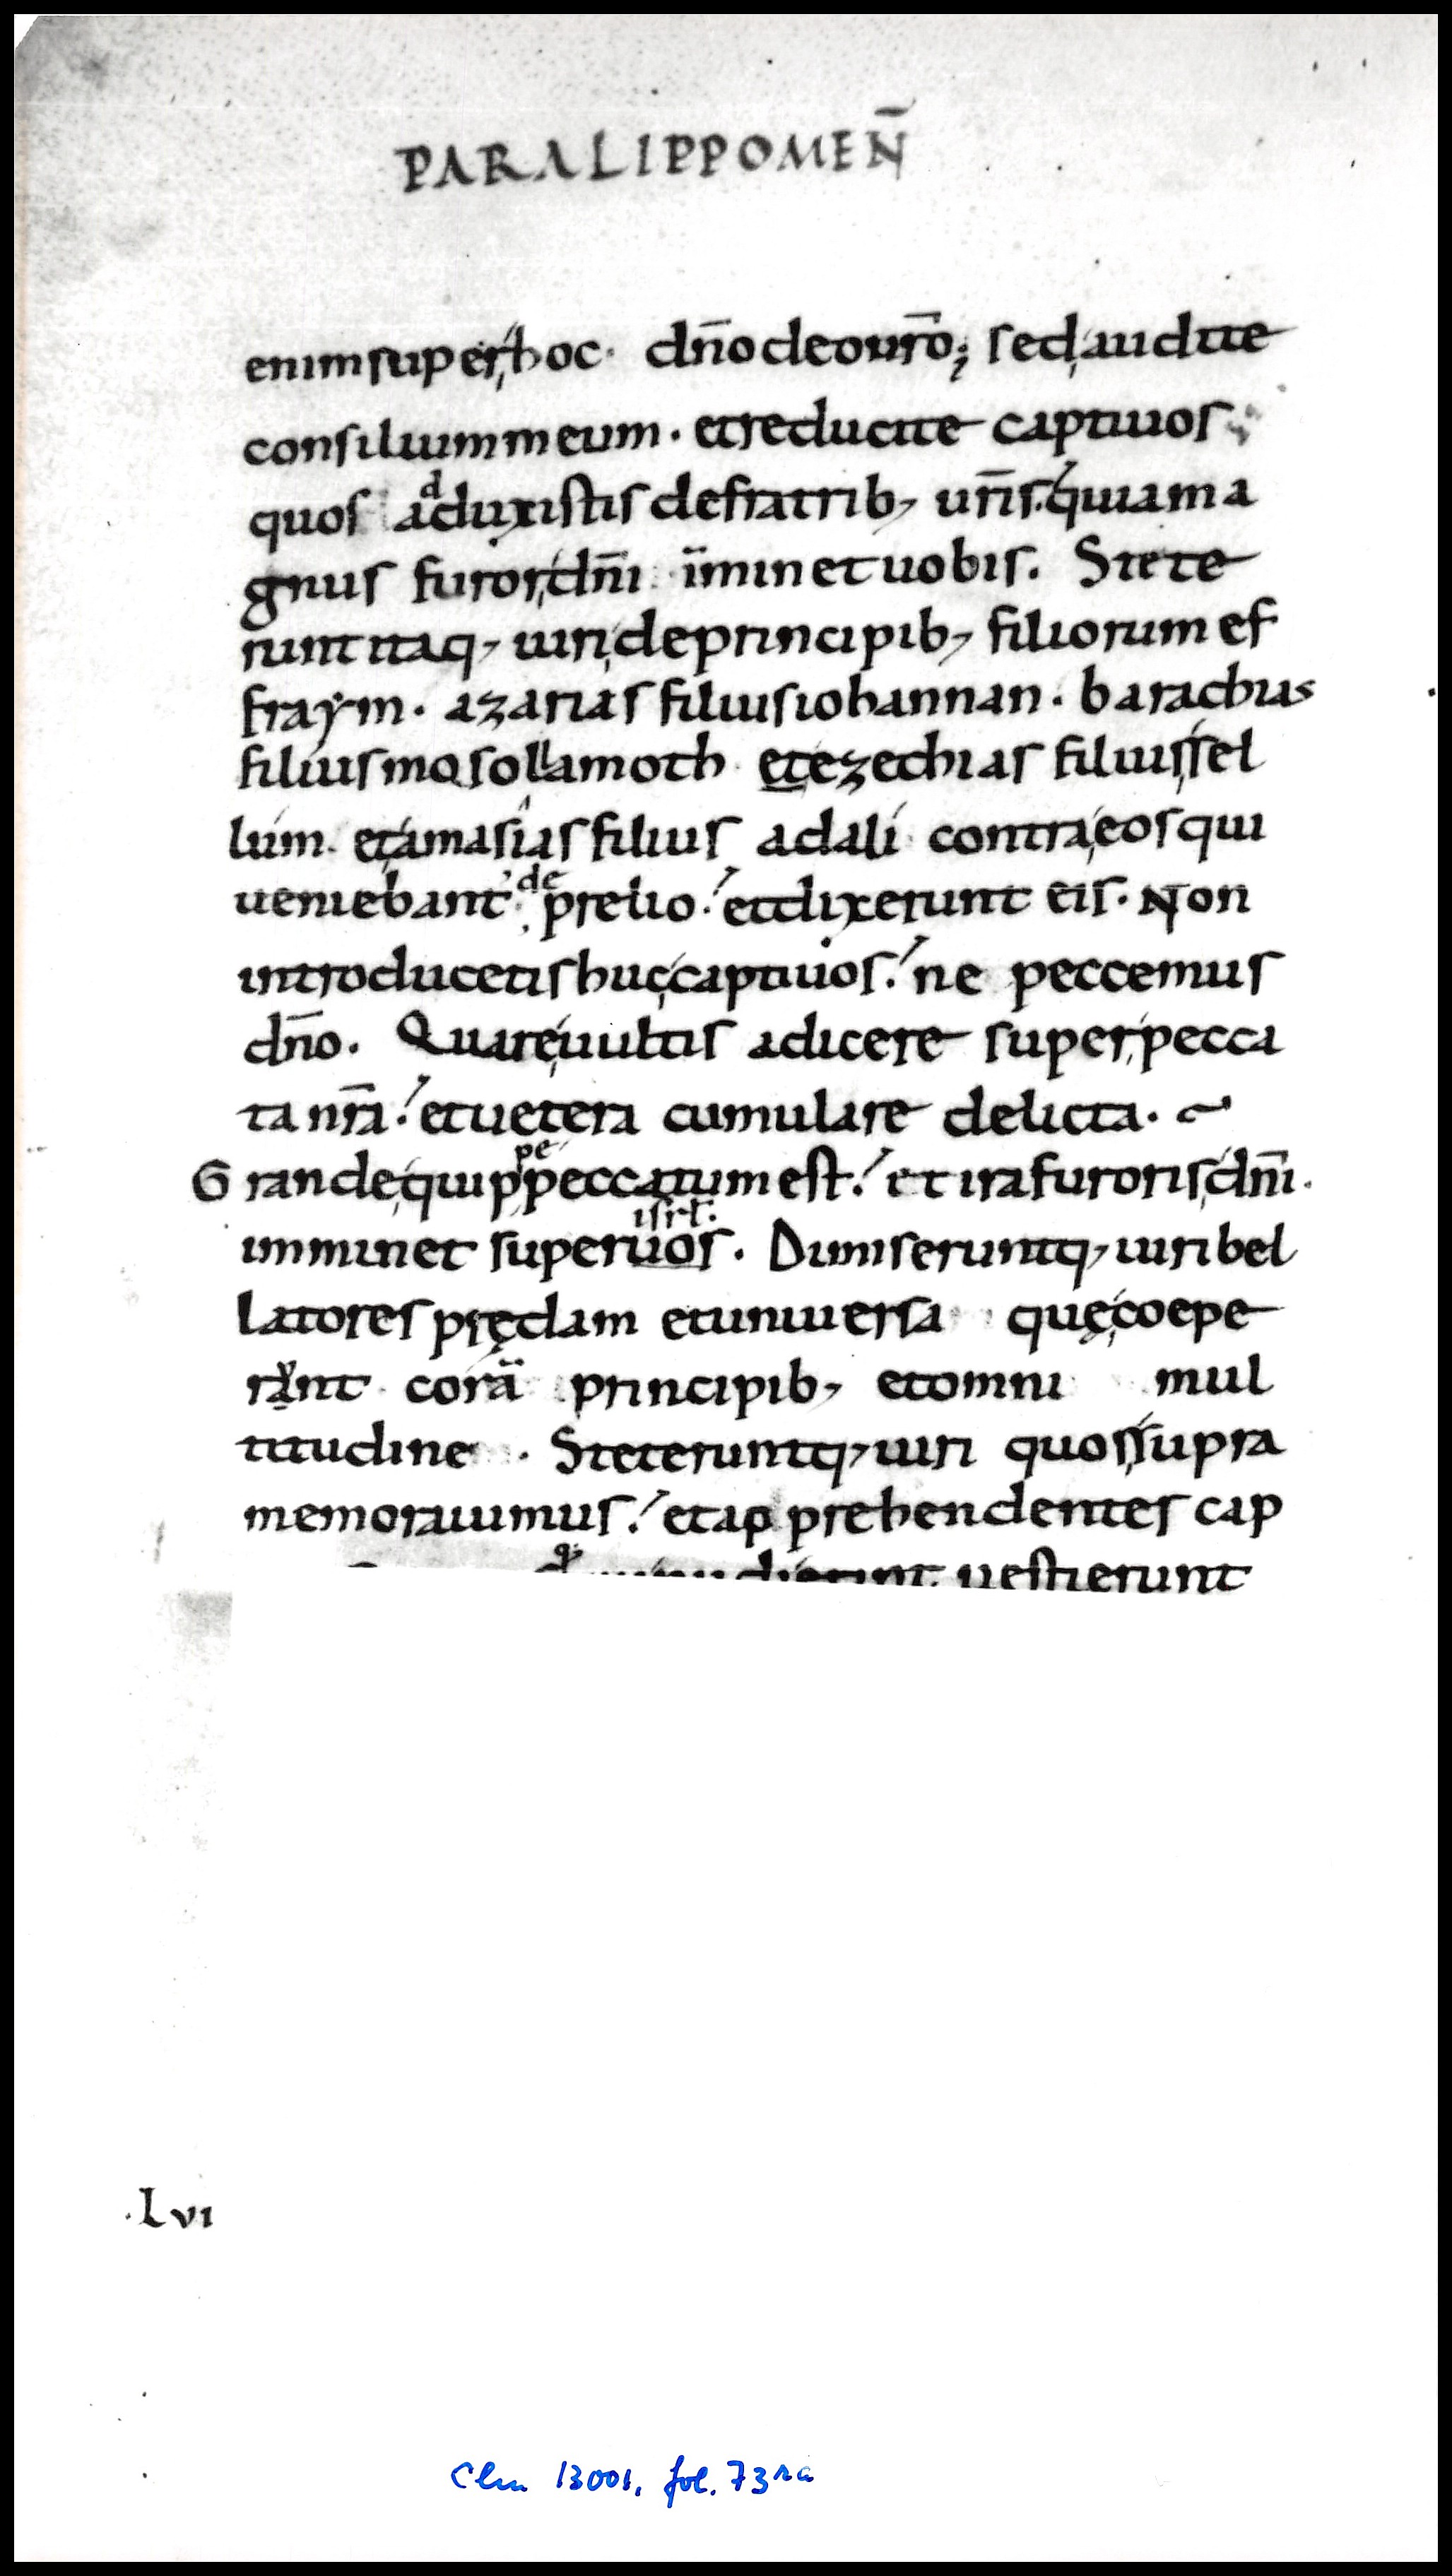 PARALIPPOMEN̄
enim super hoc · dn̄o deo ur̄o; sed audite
consilium meum · et reducite captiuos ·
quos adduxistis de fratrib; ur̄is. quia ma
gnus furor dn̄i im̄inet uobis. Stete
runt itaq; uiri de principib; filiorum ef
fraym · azarias filius iohannan · barachias
filius mosollamoth et ezechias filius sel
lum · et amasias filius adali contra eos qui
ueniebant de prelio! et dixerunt eis · Non
introducetis huc captiuos! ne peccemus
dn̄o. Quare uultis adicere super pecca
ta nr̄a! et uetera cumulare delicta ·
Grande quippe peccatum est! et ira furoris dn̄i.
isrł.
imminet super uos. Dimiseruntq; uiri bel
latores prędam et uniuersa quę coepe
rant corā principib; et omni mul
titudine · Steteruntq; uiri quos supra
memorauimus! et apprehendentes cap
uestierunt
· Lvi
Clm 13001, fol. 73ra